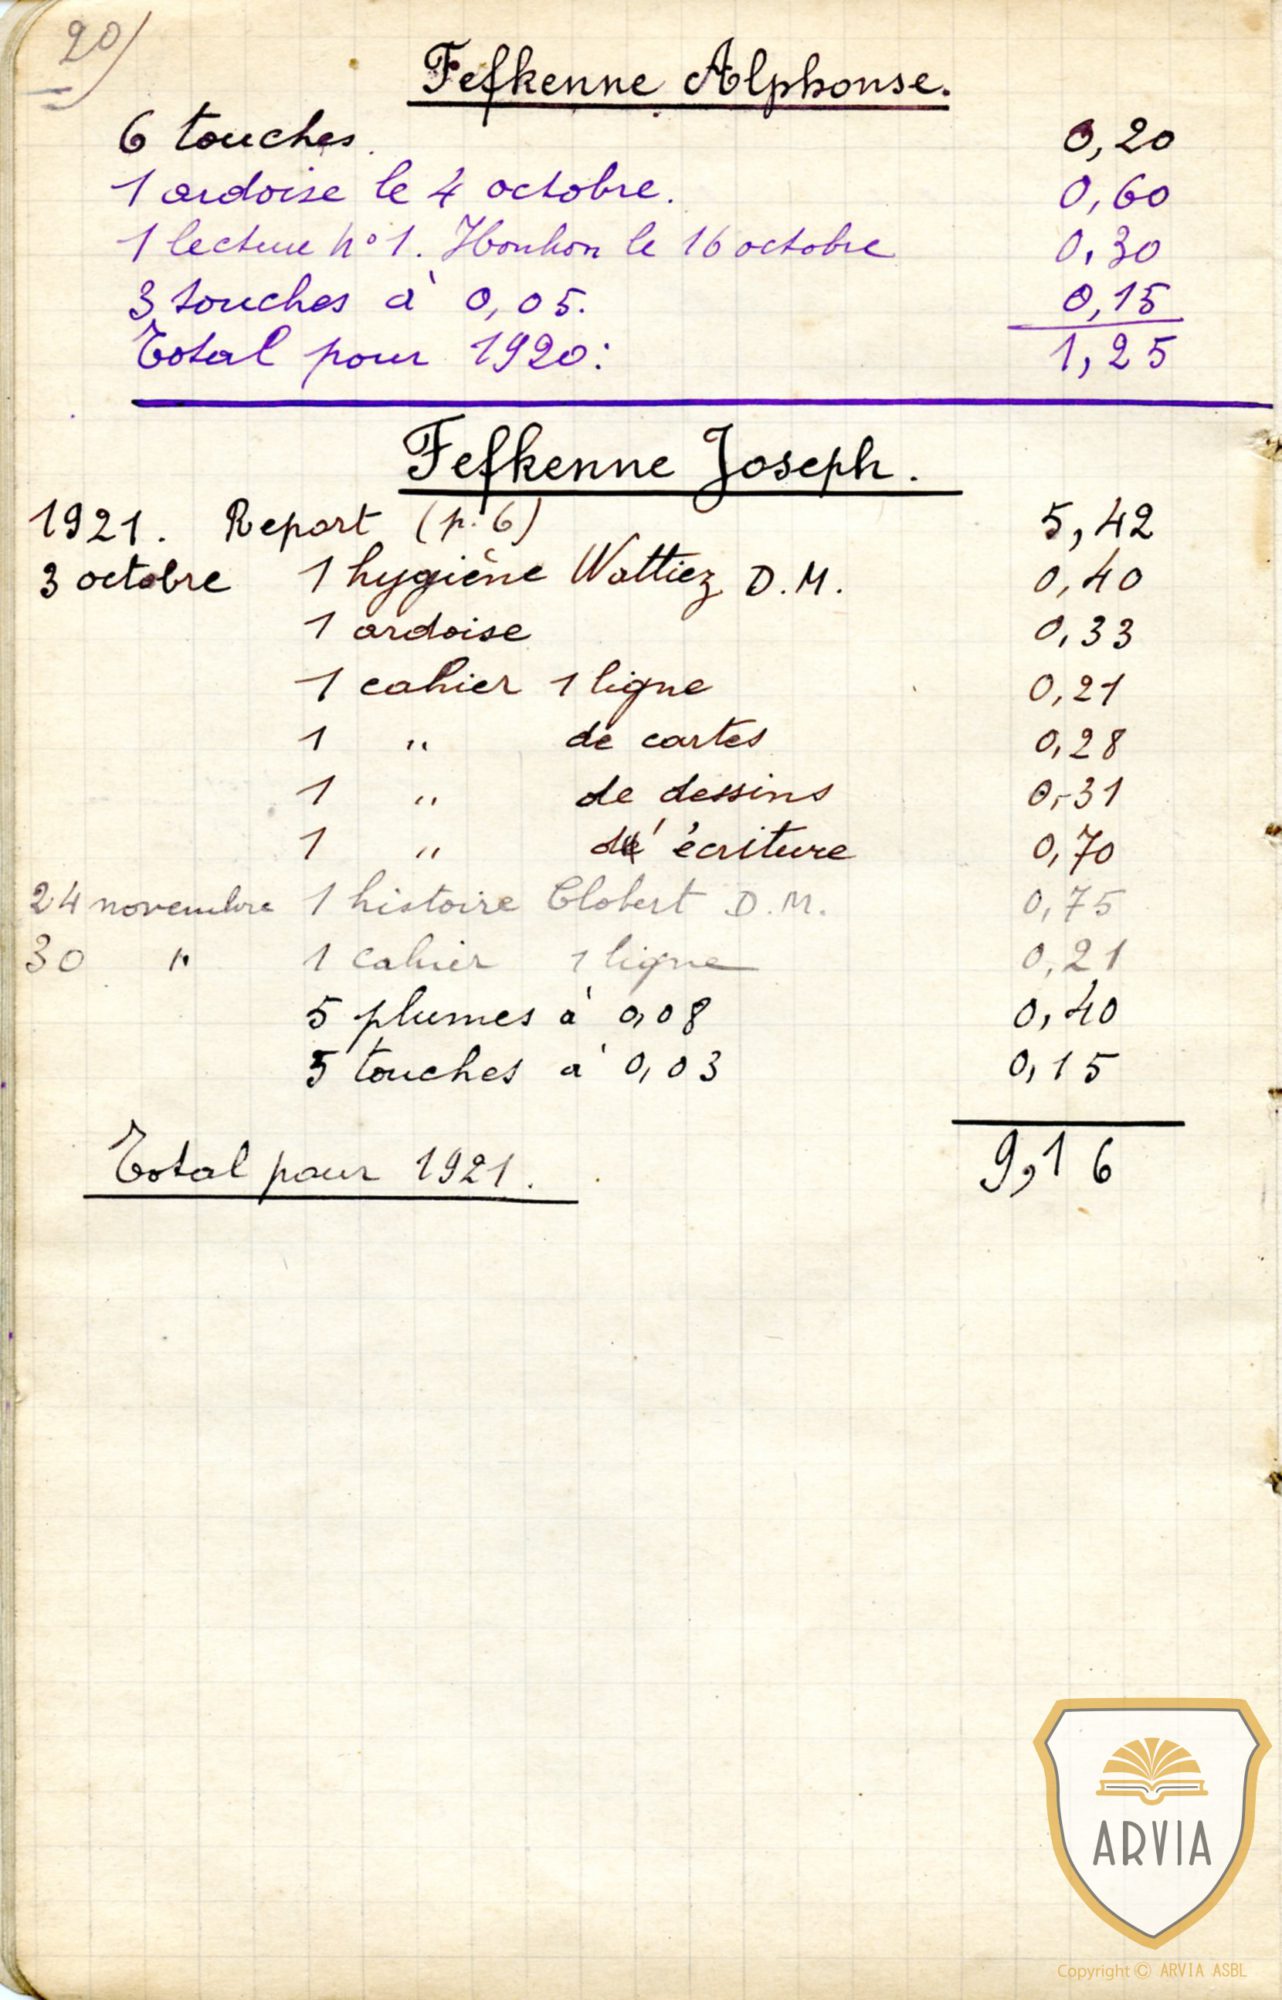 20)
Fefkenne Alphonse.
6 touches. 0,20
1 ardoise le 4 octobre. 0,60
1 lecture n° 1. Honhon le 16 octobre 0,30
3 touches à 0,05. 0,15
Total pour 1920: 1,25
Fefkenne Joseph.
1921. Report (p. 6) 5,42
3 octobre 1 hygiène Wattiez D.M. 0,40
1 ardoise 0,33
1 cahier 1 ligne 0,21
1 " de cartes 0,28
1 " de dessins 0,31
1 " d'écriture 0,70
24 novembre 1 histoire Clobert D.M. 0,75
30 " 1 cahier 1 ligne 0,21
5 plumes à 0,08 0,40
5 touches à 0,03 0,15
Total pour 1921. 9,16
ARVIA
Copyright © ARVIA ASBL